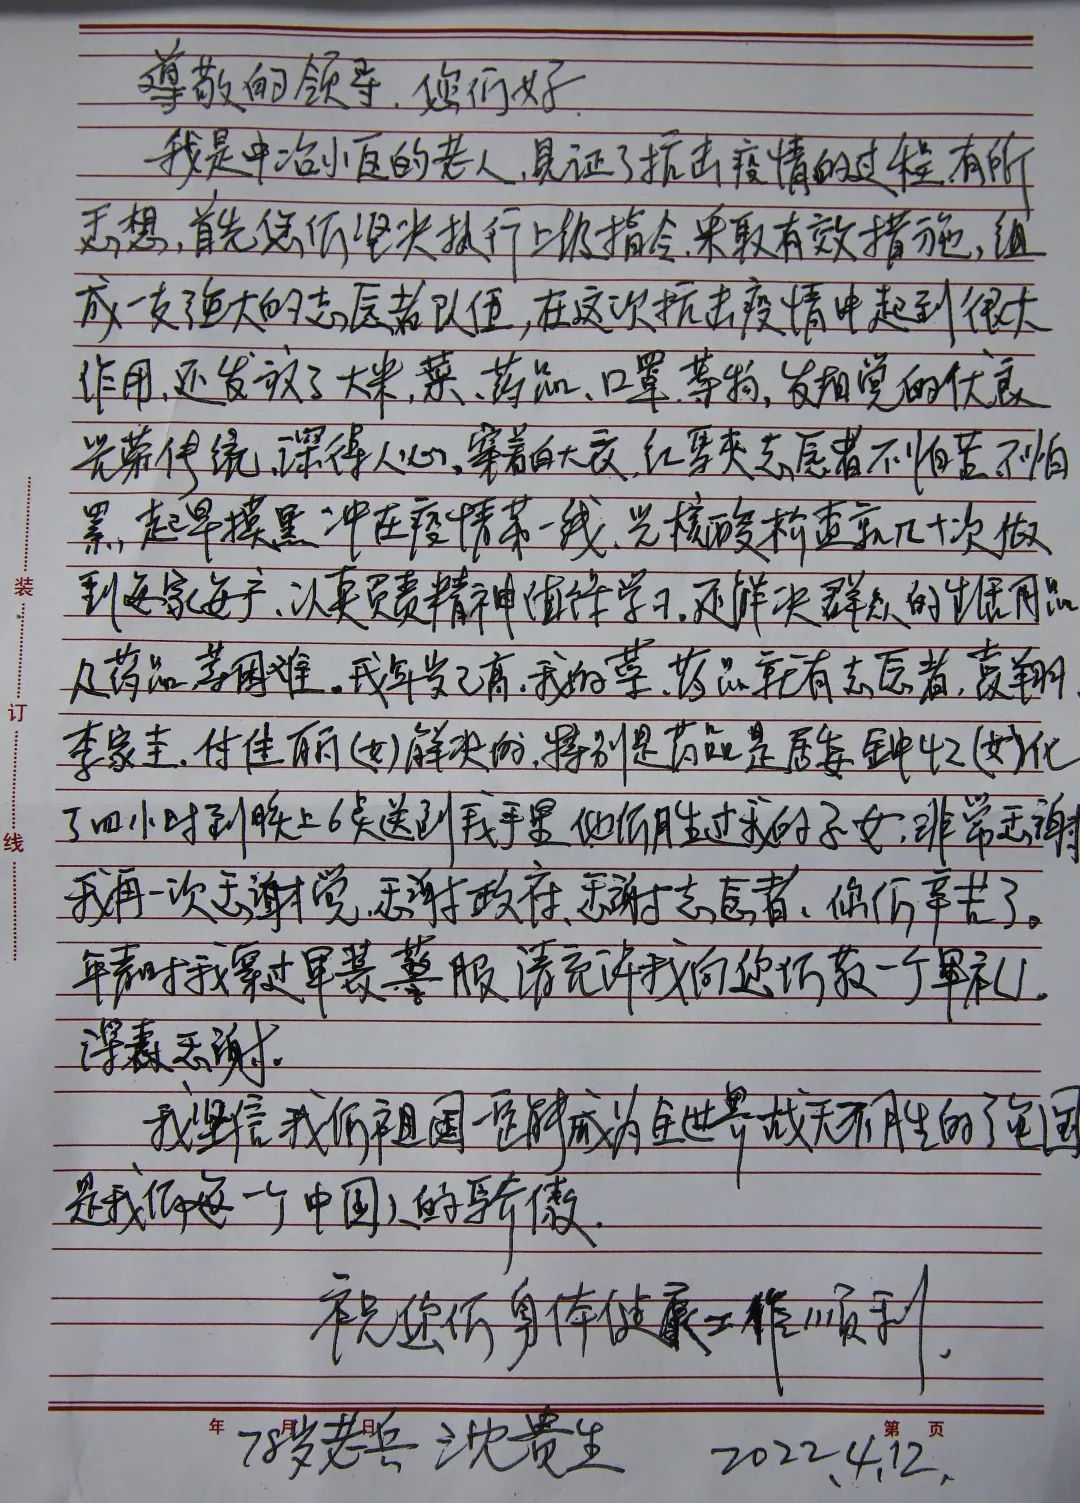 尊敬的领导、您们好
我是中冶小区的老人,见证了抗击疫情的过程,有所
感想,首先您们坚决执行上级指令,采取有效措施,组
成一支强大的志愿者队伍,在这次抗击疫情中起到很大
作用,还发放了大米,菜、药品、口罩、等物,发扬党的优良
光荣传统,深得人心,穿着白大衣,红马夹志愿者不怕苦不怕
累,起早摸黑冲在疫情第一线、光核酸检查就几十次做
到每家每户、认真负责精神值得学习,还解决群众的生活用品
及药品等困难。我年岁已高,我的菜、药品就有志愿者,袁翔、
李家圭、付佳丽(女)解决的,特别是药品是居委 (女)化
了四小时到晚上6点送到我手里他们胜过我的子女,非常感谢
我再一次感谢党、感谢政府、感谢志愿者、你们辛苦了。
年青时我穿过军装警服请允许我向您们敬一个军礼。
深表感谢.
我坚信我们祖国一定能成为全世界战无不胜的 国
是我们每一个中国人的骄傲.
祝您们身体健康工作顺利.
装
订
线
年 月 日 第 页
78岁老兵 沈贵生 2022.4.12.